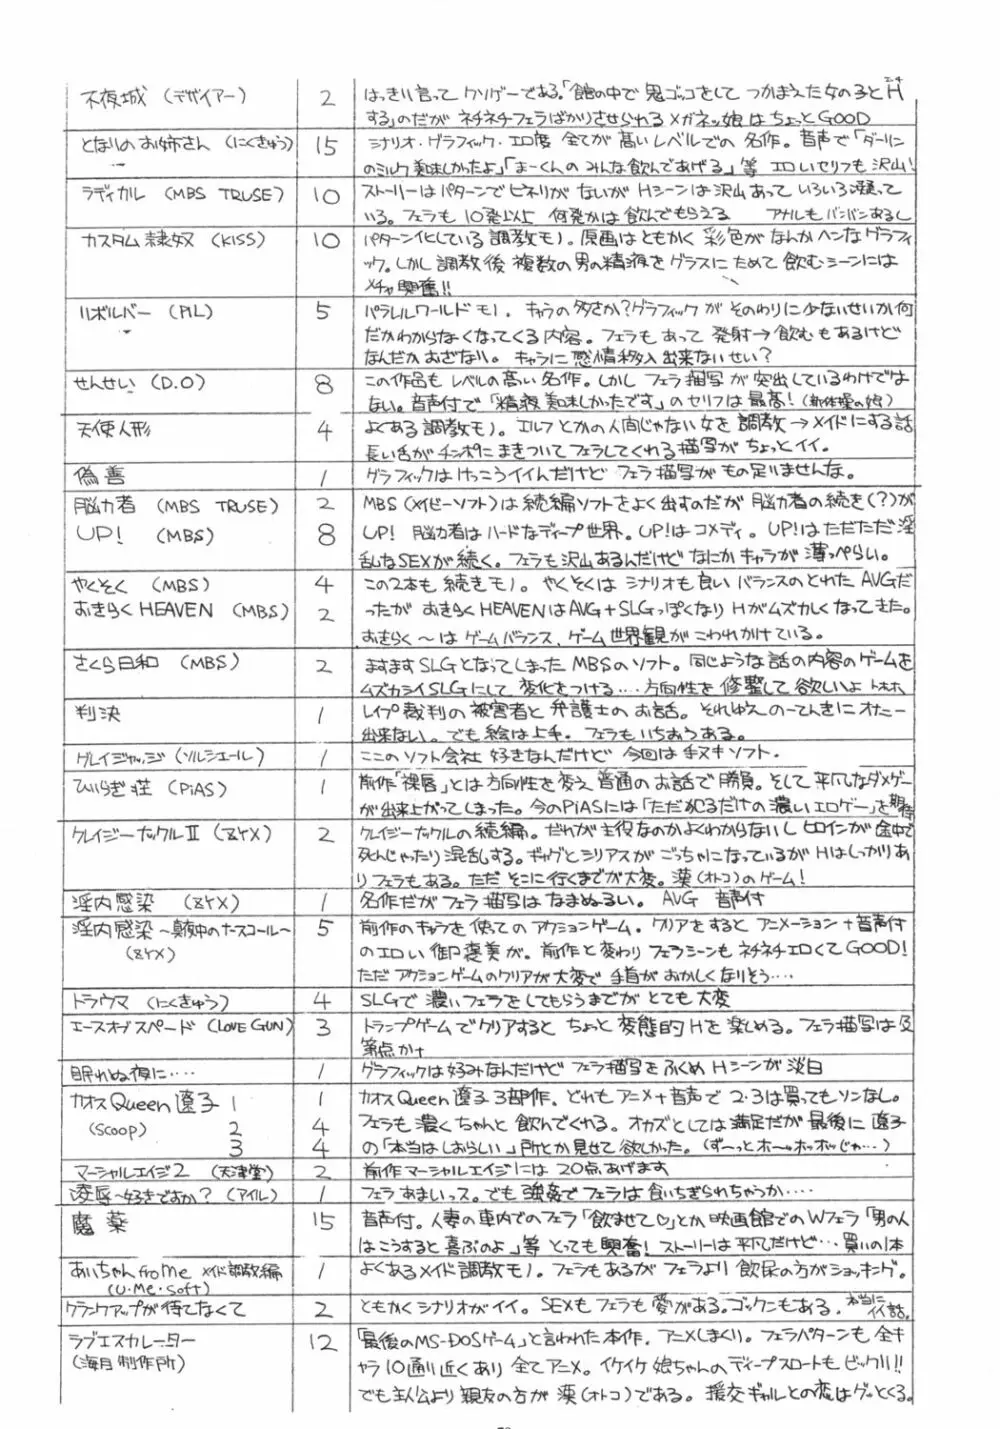 不夜城 (デザイアー) 2 はっきり言ってクソゲーである。「館の中で鬼ゴッコをしてつかまえた女の子とH
する」のだがネチネチフェラばかりさせられる メガネッ娘はちょっとGOOD
となりのお姉さん (にくきゅう) 15 シナリオ・グラフィック・エロ度 全てが高いレベルでの名作。音声で「ダーリン
のミルク美味しかったよ」「まーくんのみんな飲んであげる」等 エロいセリフも沢山!
ラディカル (MBS TRUSE) 10 ストーリーはパターンでヒネリがないがHシーンは沢山あっていろいろ凝って
いる。フェラも10発以上 何発かは飲んでもらえる アナルもバンバンあるし
カスタム隷奴 (KISS) 10 パターン化している調教モノ。原画はともかく彩色がなんかヘンなグラフィ
ック。しかし調教後複数の男の精液をグラスにためて飲むシーンには
メチャ興奮!!
リボルバー (PIL) 5 パラレルワールドモノ。キャラの多さか?グラフィックがそのわりに少ないせいか何
だかわからなくなってくる内容。フェラもあって発射→飲むもあるけど
なんだかおざなり。キャラに感情移入出来ないせい?
せんせい (D.O) 8 この作品もレベルの高い名作。しかしフェラ描写が突出しているわけでは
ない。音声付で「精液美味しかったです」のセリフは最高!(新体操の娘)
天使人形 4 よくある調教モノ。エルフとかの人間じゃない女を調教→メイドにする話
長い舌がチンポにまきついてフェラしてくれる描写がちょっとイイ。
偽善 1 グラフィックはけっこうイイんだけどフェラ描写がもの足りませんな。
脳力者 (MBS TRUSE) 2 MBS(メイビーソフト)は続編ソフトをよく出すのだが脳力者の続き(?)が
UP! (MBS) 8 UP! 脳力者はハードなディープ世界。UP!はコメディ。UP!はただただ淫
乱なSEXが続く。フェラも沢山あるんだけどなにかキャラが薄っぺらい。
やくそく (MBS) 4 この2本も続きモノ。やくそくはシナリオも良いバランスのとれたAVGだ
おきらくHEAVEN (MBS) 2 ったがおきらくHEAVENはAVG+SLGっぽくなりHがムズカしくなってきた。
おきらく~はゲームバランス、ゲーム世界観がこわれかけている。
さくら日和 (MBS) 2 ますますSLGとなってしまったMBSのソフト。同じような話の内容のゲームを
ムズカシイSLGにして変化をつける‥‥方向性を修整して欲しいよ トホホ
判決 1 レイプ裁判の被害者と弁護士のお話。それゆえのーてんきにオナニー
出来ない。でも絵は上手。フェラもいちおうある。
グレイジャッジ (ソルシエール) 1 ここのソフト会社好きなんだけど今回は手ヌキソフト.
ひいらぎ荘 (PiAS) 1 前作「裸唇」とは方向性を変え普通のお話で勝負。そして平凡なダメゲー
が出来上がってしまった。今のPiASには「ただ犯るだけの濃いエロゲー」を期待
クレイジーナックルII (ZYX) 2 クレイジーナックルの続編。だれが主役なのかよくわからないしヒロインが途中で
死んじゃったり混乱する。ギャグとシリアスがごっちゃになっているがHはしっかりあ
りフェラもある。ただそこに行くまでが大変。漢(オトコ)のゲーム!
淫内感染 (ZYX) 1 名作だがフェラ描写はなまぬるい。AVG 音声付
淫内感染~真夜中のナースコール~ 5 前作のキャラを使ってのアクションゲーム。クリアをするとアニメーション+音声付
(ZYX) のエロい御褒美が。前作と変わりフェラシーンもネチネチエロくてGOOD!
ただアクションゲームのクリアが大変で手首がおかしくなりそう‥‥
トラウマ (にくきゅう) 4 SLGで濃いフェラをしてもらうまでがとても大変
エースオブスペード (LOVE GUN) 3 トランプゲームでクリアするとちょっと変態的Hを楽しめる。フェラ描写は及
第点かナ
眠れぬ夜に‥‥ 1 グラフィックは好みなんだけどフェラ描写をふくめHシーンが淡白
カオスQueen遼子 1 1 カオスQueen遼子3部作. どれもアニメ+音声で2・3は買ってもソンなし。
(SCOOP) 2 4 フェラも濃くちゃんと飲んでくれる。オカズとしては満足だが最後に遼子
3 4 の「本当はしおらしい」所とか見せて欲しかった。(ず~っとホ~ッホッホッじゃ‥‥)
マーシャルエイジ2 (天津堂) 2 前作マーシャルエイジには20点あげます
凌辱~好きですか? (アイル) 1 フェラあまいっス。でも強姦でフェラは食いちぎられちゃうか‥‥
魔薬 15 音声付。人妻の車内でのフェラ「飲ませて♡」とか映画館でのWフェラ「男の人
はこうすると喜ぶのよ」等とっても興奮!ストーリーは平凡だけど‥‥買いの1本
あいちゃんfroMe メイド調教編 1 よくあるメイド調教モノ。フェラもあるがフェラより飲尿の方がショッキング。
(U・Me・Soft)
クランクアップが待てなくて 2 ともかくシナリオがイイ。SEXもフェラも愛がある。ゴックンもある. 本当にイイ話。
ラブエスカレーター 12 「最後のMS-DOSゲーム」と言われた本作. アニメしまくり。フェラパターンも全キ
(海月製作所) ャラ10通り近くあり全てアニメ。イケイケ娘ちゃんのディープスロートもビックリ!!
でも主人公より親友の方が漢(オトコ)である。援交ギャルとの恋はグッとくる。